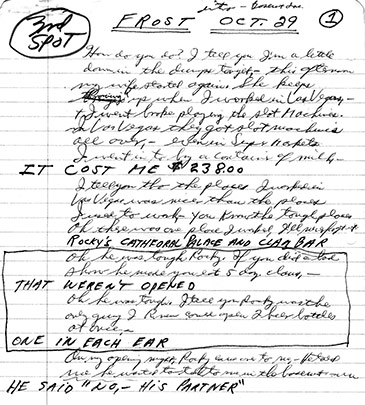 intro -
3RD SPOT FROST OCT. 29 1
How do you do? I tell you I'm a little
down in the dumps tonight - this afternoon
my wife started again. She keeps
up when I worked in Las Vegas, -
I went broke playing the slot machines.
In Las Vegas they got slot machines
all over, - even in Super Markets
I went in to buy a container of milk -
IT COST ME $238.00
I tell you tho the places I worked in
Las Vegas was nicer than the places
I used to work. You know the tough places
Oh there was one place I worked, I'll never forget it
ROCKY'S CATHEDRAL PALACE AND CLAM BAR
Oh he was tough Rocky. If you did a bad
show he made you eat 5 doz. clams, -
THAT WEREN'T OPENED
Oh he was tough. I tell you Rocky was the
only guy I know could open 2 beer bottles
at once, -
ONE IN EACH EAR
On my opening night Rocky came over to me, - He told
me he wanted to talk to me in the basement
HE SAID "NO, - HIS PARTNER"